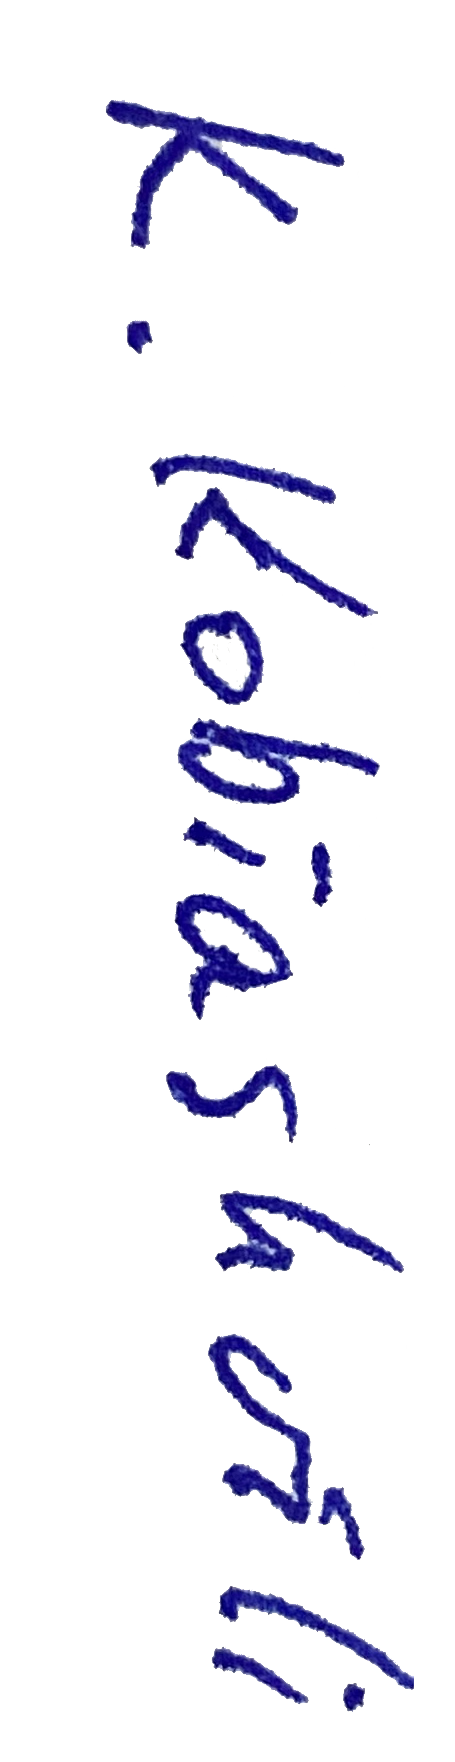 K. Kobiashvili